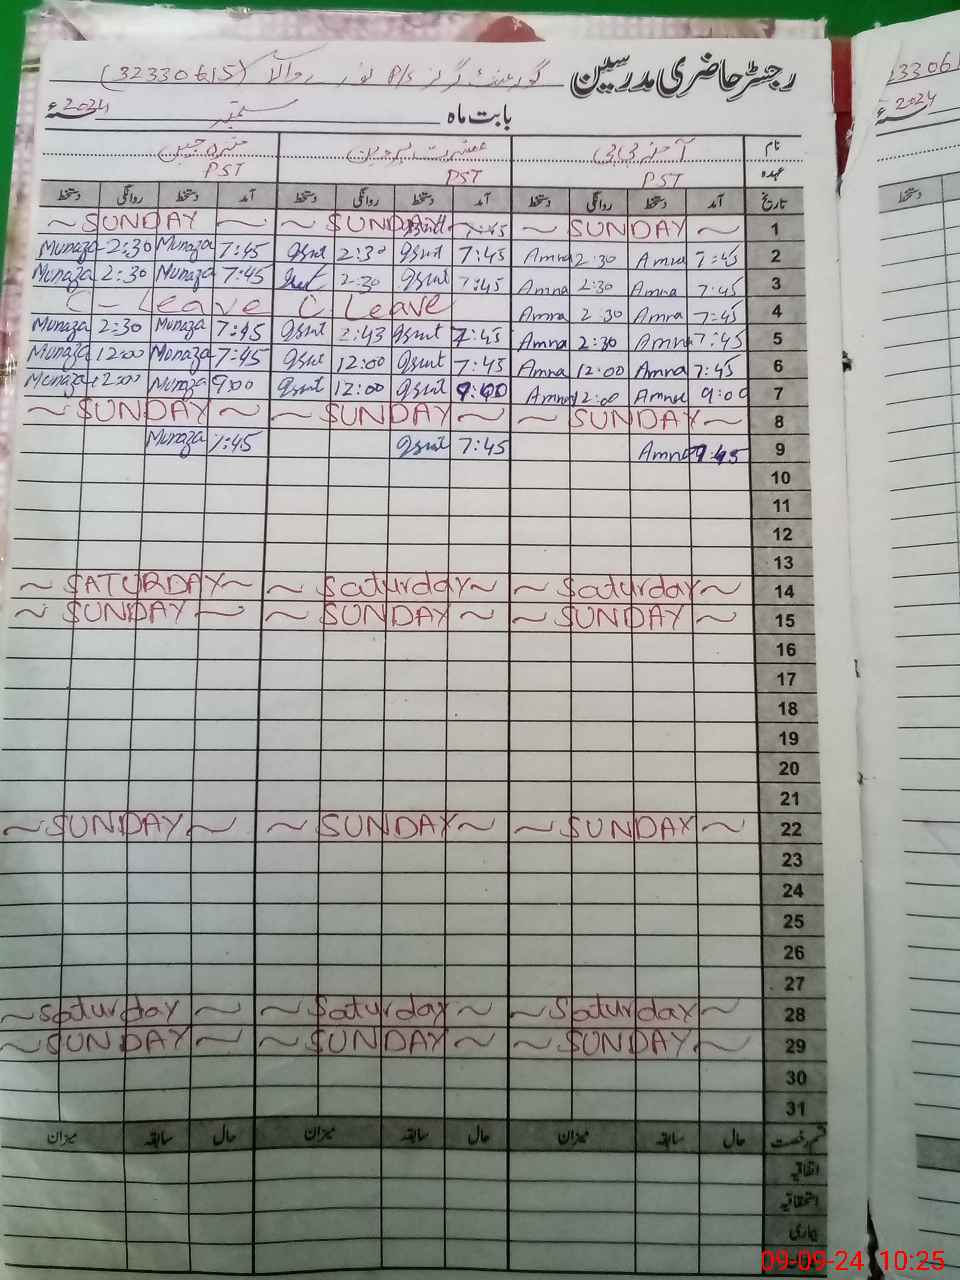 رجسٹر حاضری مدرسین گورنمنٹ گرلز P/S نور والا (32330615)
بابت ماہ ستمبر 2024ء
نام آمنہ بی بی عشرت پروین منزہ جبین
عہدہ PST PST PST
تاریخ آمد دستخط روانگی دستخط آمد دستخط روانگی دستخط آمد دستخط روانگی دستخط
~ SUNDAY ~ ~ SUNDAY 7:45 ~ SUNDAY ~ 1
Munaza 2:30 Munaza 7:45 qsrut 2:30 qsrut 7:45 Amna 2:30 Amna 7:45 2
Munaza 2:30 Munaza 7:45 2:30 qsrut 7:45 Amna 2:30 Amna 7:45 3
C - Leave C Leave Amna 2:30 Amna 7:45 4
Munaza 2:30 Munaza 7:45 qsrut 2:43 qsrut 7:45 Amna 2:30 Amna 7:45 5
Munaza 12:00 Munaza 7:45 qsrut 12:00 qsrut 7:45 Amna 12:00 Amna 7:45 6
Munaza 12:00 Munaza 9:00 qsrut 12:00 qsrut 9:00 Amna 12:00 Amna 9:00 7
~ SUNDAY ~ ~ SUNDAY ~ ~ SUNDAY ~ 8
Munaza 7:45 qsrut 7:45 Amna 7:45 9
10
11
12
13
~ SATURDAY ~ ~ Saturday ~ ~ Saturday ~ 14
~ SUNDAY ~ ~ SUNDAY ~ ~ SUNDAY ~ 15
16
17
18
19
20
21
~ SUNDAY ~ ~ SUNDAY ~ ~ SUNDAY ~ 22
23
24
25
26
27
~ Saturday ~ ~ Saturday ~ ~ Saturday ~ 28
~ SUNDAY ~ ~ SUNDAY ~ ~ SUNDAY ~ 29
30
31
قسم رخصت حال سابقہ میزان حال سابقہ میزان حال سابقہ میزان
اتفاقیہ
استحقاقیہ
بیماری
2024ء
09-09-24 10:25